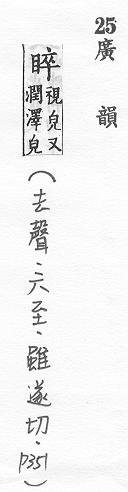 25
廣韻
睟視皃又潤澤皃
(去聲、六至、雖遂切、P351)